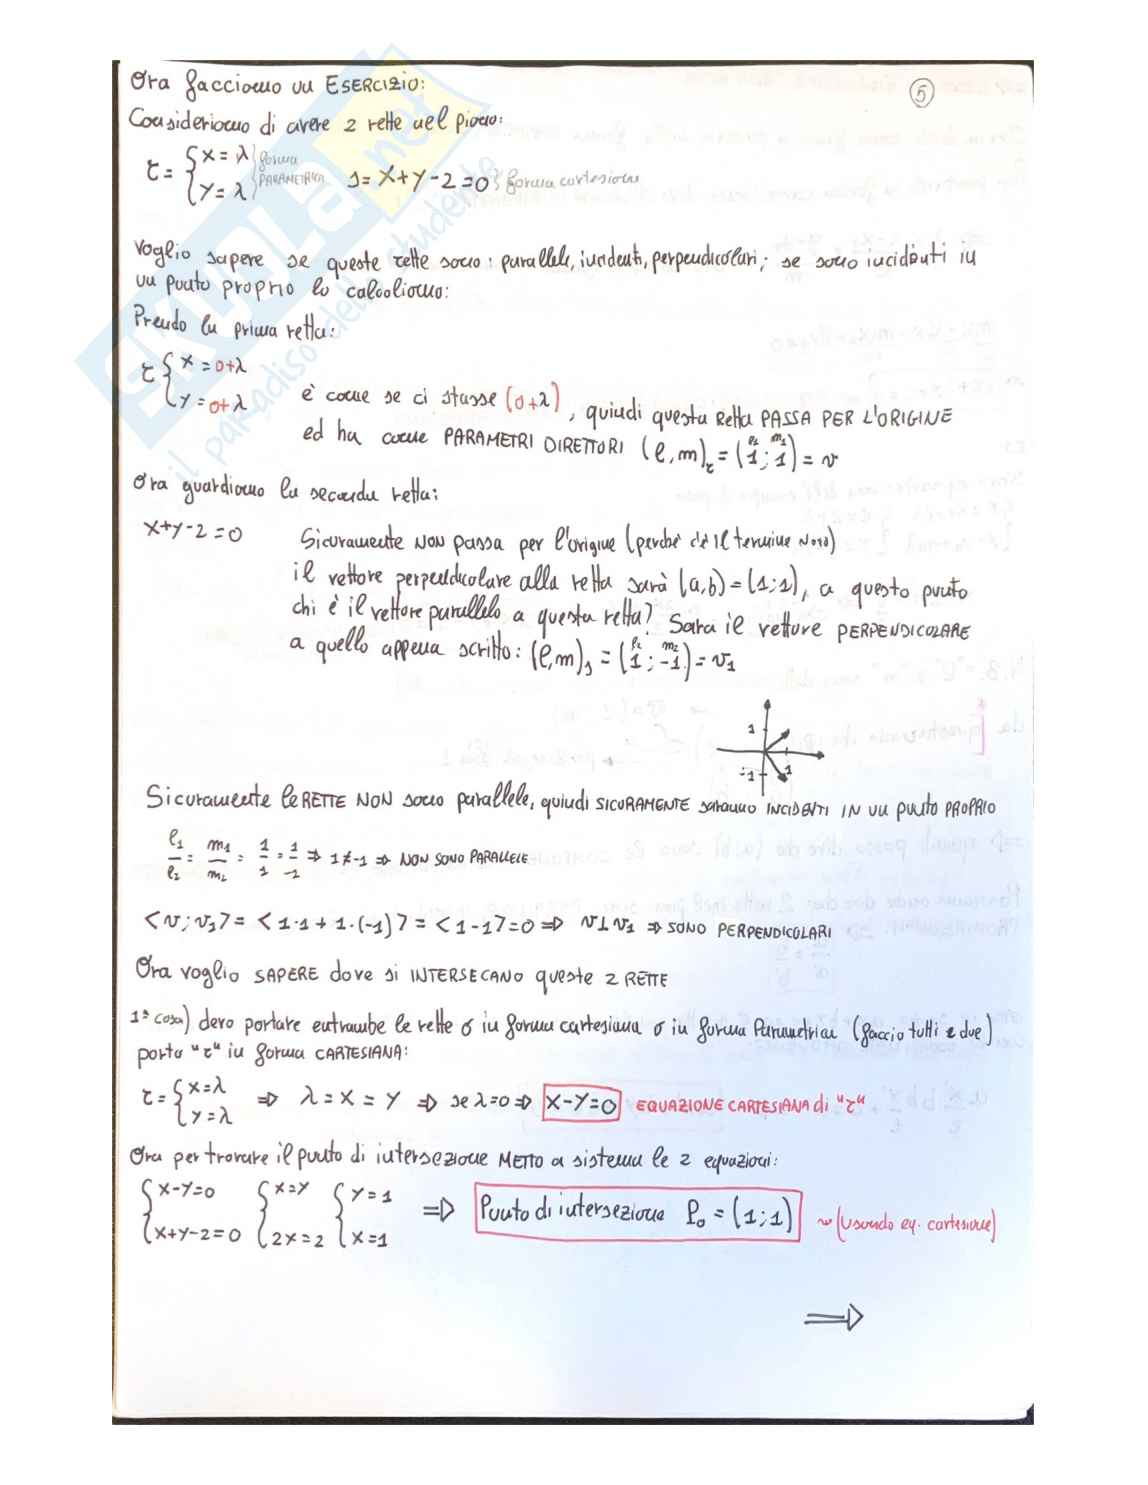 Ora facciamo un ESERCIZIO:
5
Consideriamo di avere 2 rette nel piano:
r = { x = λ
y = λ } forma PARAMETRICA
s = x+y-2=0 } forma cartesiana
Voglio sapere se queste rette sono: parallele, incidenti, perpendicolari; se sono incidenti in
un punto proprio lo calcoliamo:
Prendo la prima retta:
r { x = 0+λ
y = 0+λ
è come se ci stasse (0+λ), quindi questa retta PASSA PER L'ORIGINE
ed ha come PARAMETRI DIRETTORI (l,m)r = (1 ; 1) = v
l1 m1
Ora guardiamo la seconda retta:
x+y-2=0
Sicuramente NON passa per l'origine (perché c'è il termine noto)
il vettore perpendicolare alla retta sarà (a,b) = (1;1), a questo punto
chi è il vettore parallelo a questa retta? Sarà il vettore PERPENDICOLARE
a quello appena scritto: (l,m)s = (1 ; -1) = v1
l2 m2
1
-1
1
Sicuramente le RETTE NON sono parallele, quindi SICURAMENTE saranno INCIDENTI IN un punto PROPRIO
l1/l2 = m1/m2 = 1/1 = 1/-1 ⇒ 1≠-1 ⇒ NON SONO PARALLELE
<v; v1> = <1·1 + 1·(-1)> = <1-1> = 0 ⇒ v⊥v1 ⇒ SONO PERPENDICOLARI
Ora voglio SAPERE dove si INTERSECANO queste 2 RETTE
1ª cosa) devo portare entrambe le rette o in forma cartesiana o in forma Parametrica (faccio tutti e due)
porto "r" in forma CARTESIANA:
r = { x=λ
y=λ ⇒ λ = x = y ⇒ se λ=0 ⇒ x-y=0 EQUAZIONE CARTESIANA di "r"
Ora per trovare il punto di intersezione METTO a sistema le 2 equazioni:
{ x-y=0 { x=y { y=1
x+y-2=0 2x=2 x=1
⇒ Punto di intersezione P0 = (1;1) ~ (usando eq. cartesiane)
⇒
SKUOLA.net
il paradiso dello studente